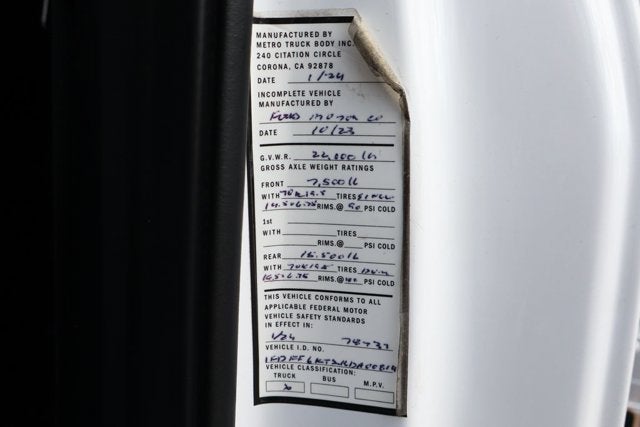 MANUFACTURED BY
METRO TRUCK BODY INC.
240 CITATION CIRCLE
CORONA, CA 92878
DATE 1/24
INCOMPLETE VEHICLE
MANUFACTURED BY
FORD MOTOR CO
DATE 10/23
G.V.W.R. 22,000 lb
GROSS AXLE WEIGHT RATINGS
FRONT 7,500 lb
WITH TIRES
RIMS.@ PSI COLD
1st
WITH TIRES
RIMS.@ PSI COLD
REAR 15.500 lb
WITH TIRES
RIMS.@ PSI COLD
THIS VEHICLE CONFORMS TO ALL
APPLICABLE FEDERAL MOTOR
VEHICLE SAFETY STANDARDS
IN EFFECT IN:
1/24
VEHICLE I.D. NO.
VEHICLE CLASSIFICATION:
TRUCK BUS M.P.V.
X